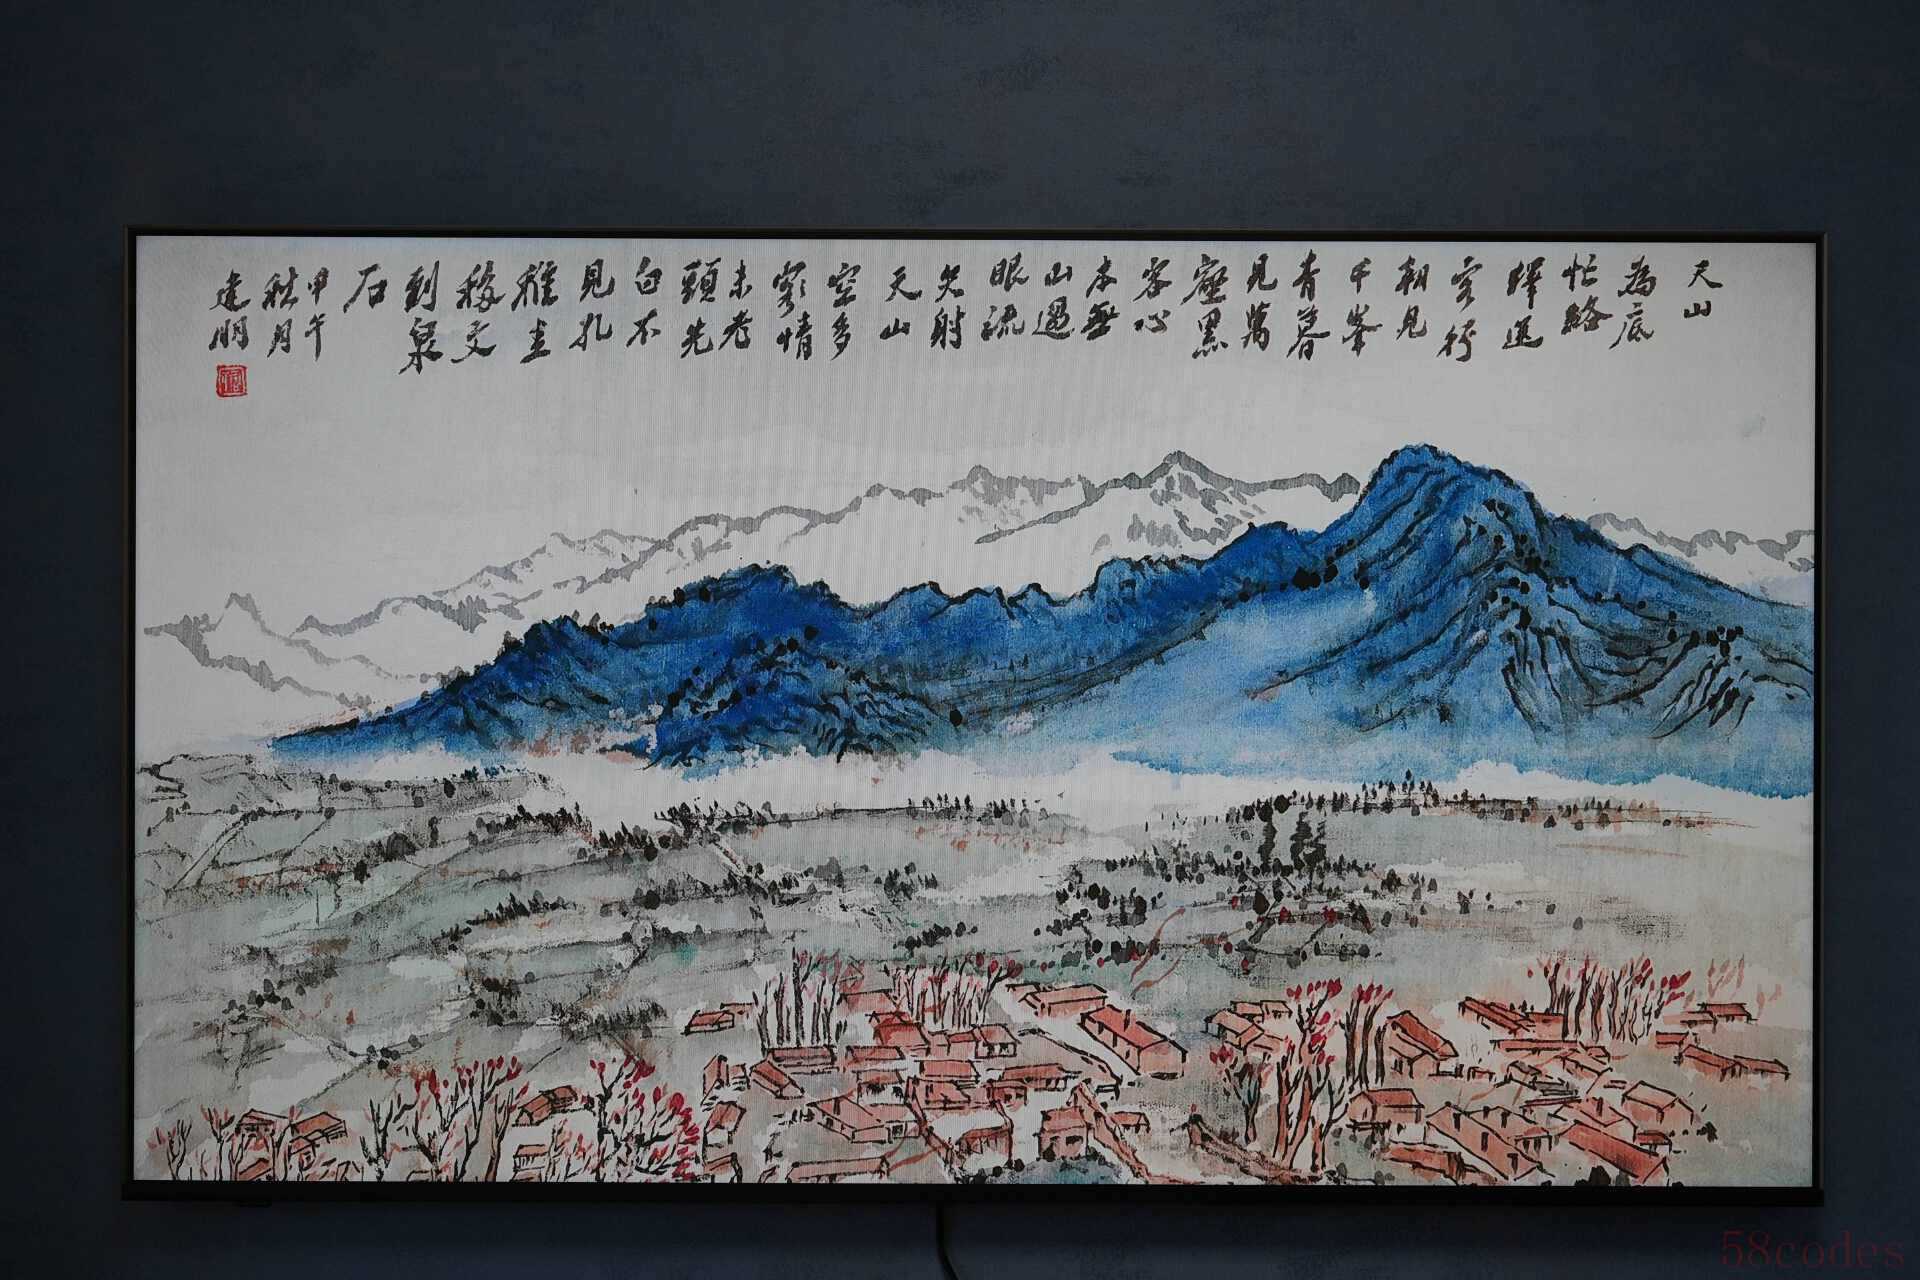 天山
為底
忙絡
繹送
客行
朝見
千峯
青暮
見萬
壑黑
客心
本無
山過
眼流
矢射
天山
空多
情
未老
頭先
白不
見孔
稚圭
移文
到泉
石
甲午
秋月
建明
58codes